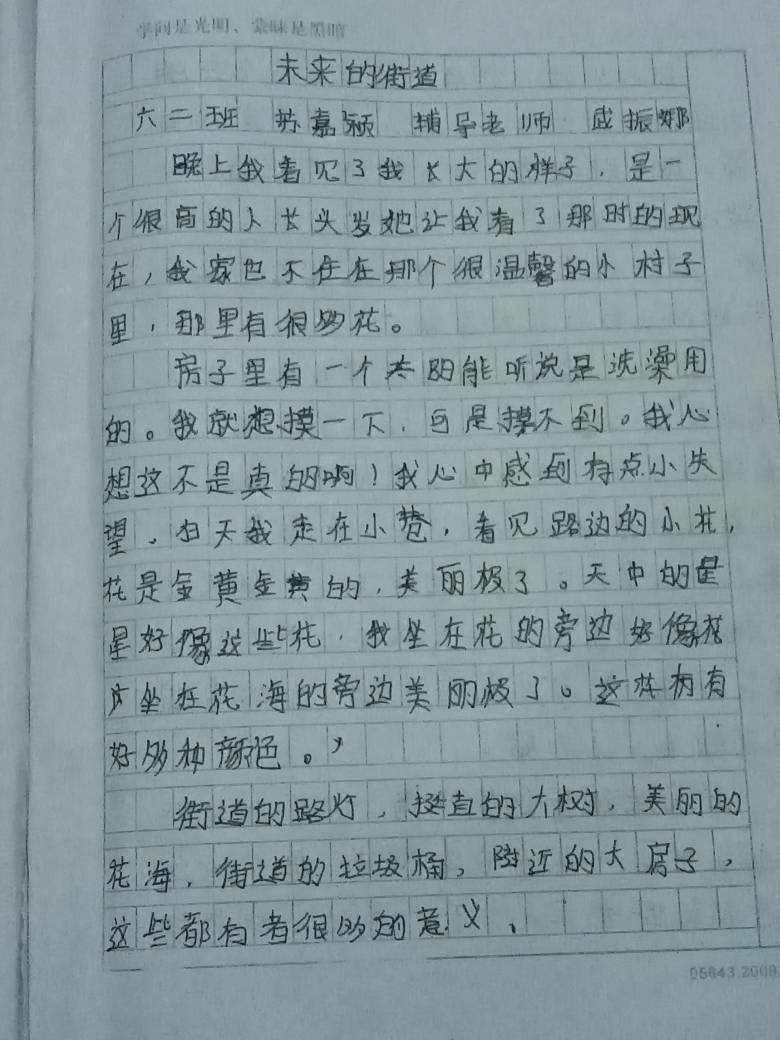 学问是光明、蒙昧是黑暗
未来的街道
六二班 苏嘉颖 辅导老师 盛振娜
晚上我看见了我长大的样子，是一
个很高的人长头发她让我看了那时的现
在，我家也不住在那个很温馨的小村子
里，那里有很多花。
房子里有一个太阳能听说是洗澡用
的。我就想摸一下，可是摸不到。我心
想这不是真的啊！我心中感到有点小失
望。白天我走在小巷，看见路边的小花，
花是金黄金黄的，美丽极了。天中的星
星好像这些花，我坐在花的旁边好像在
坐在花海的旁边美丽极了。这花有
好多种颜色。
街道的路灯，挺直的大树，美丽的
花海，街道的垃圾桶，附近的大房子，
这些都有着很多的意义。
05643.2008